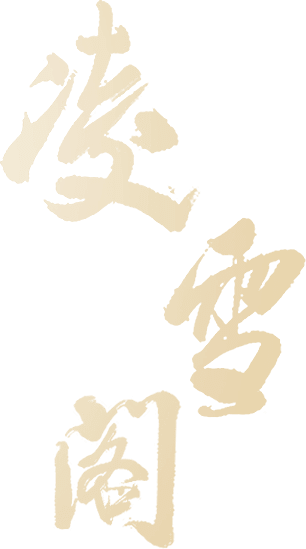 凌雪阁